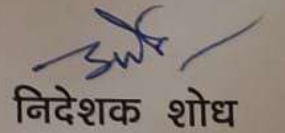 निदेशक शोध